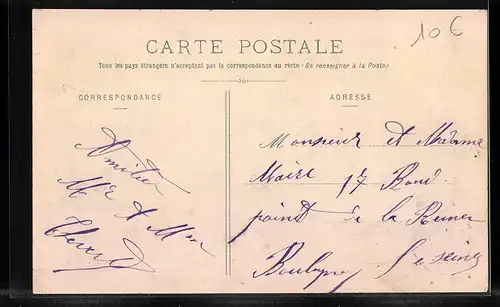 10€
CARTE POSTALE
Tous les pays étrangers n'acceptent pas la correspondance au recto (Se renseigner à la Poste)
CORRESPONDANCE
ADRESSE
Amitiés
Mr & Mme
Monsieur et Madame
Maire 17 Rond
point de la Reine
Boulogne s/ seine